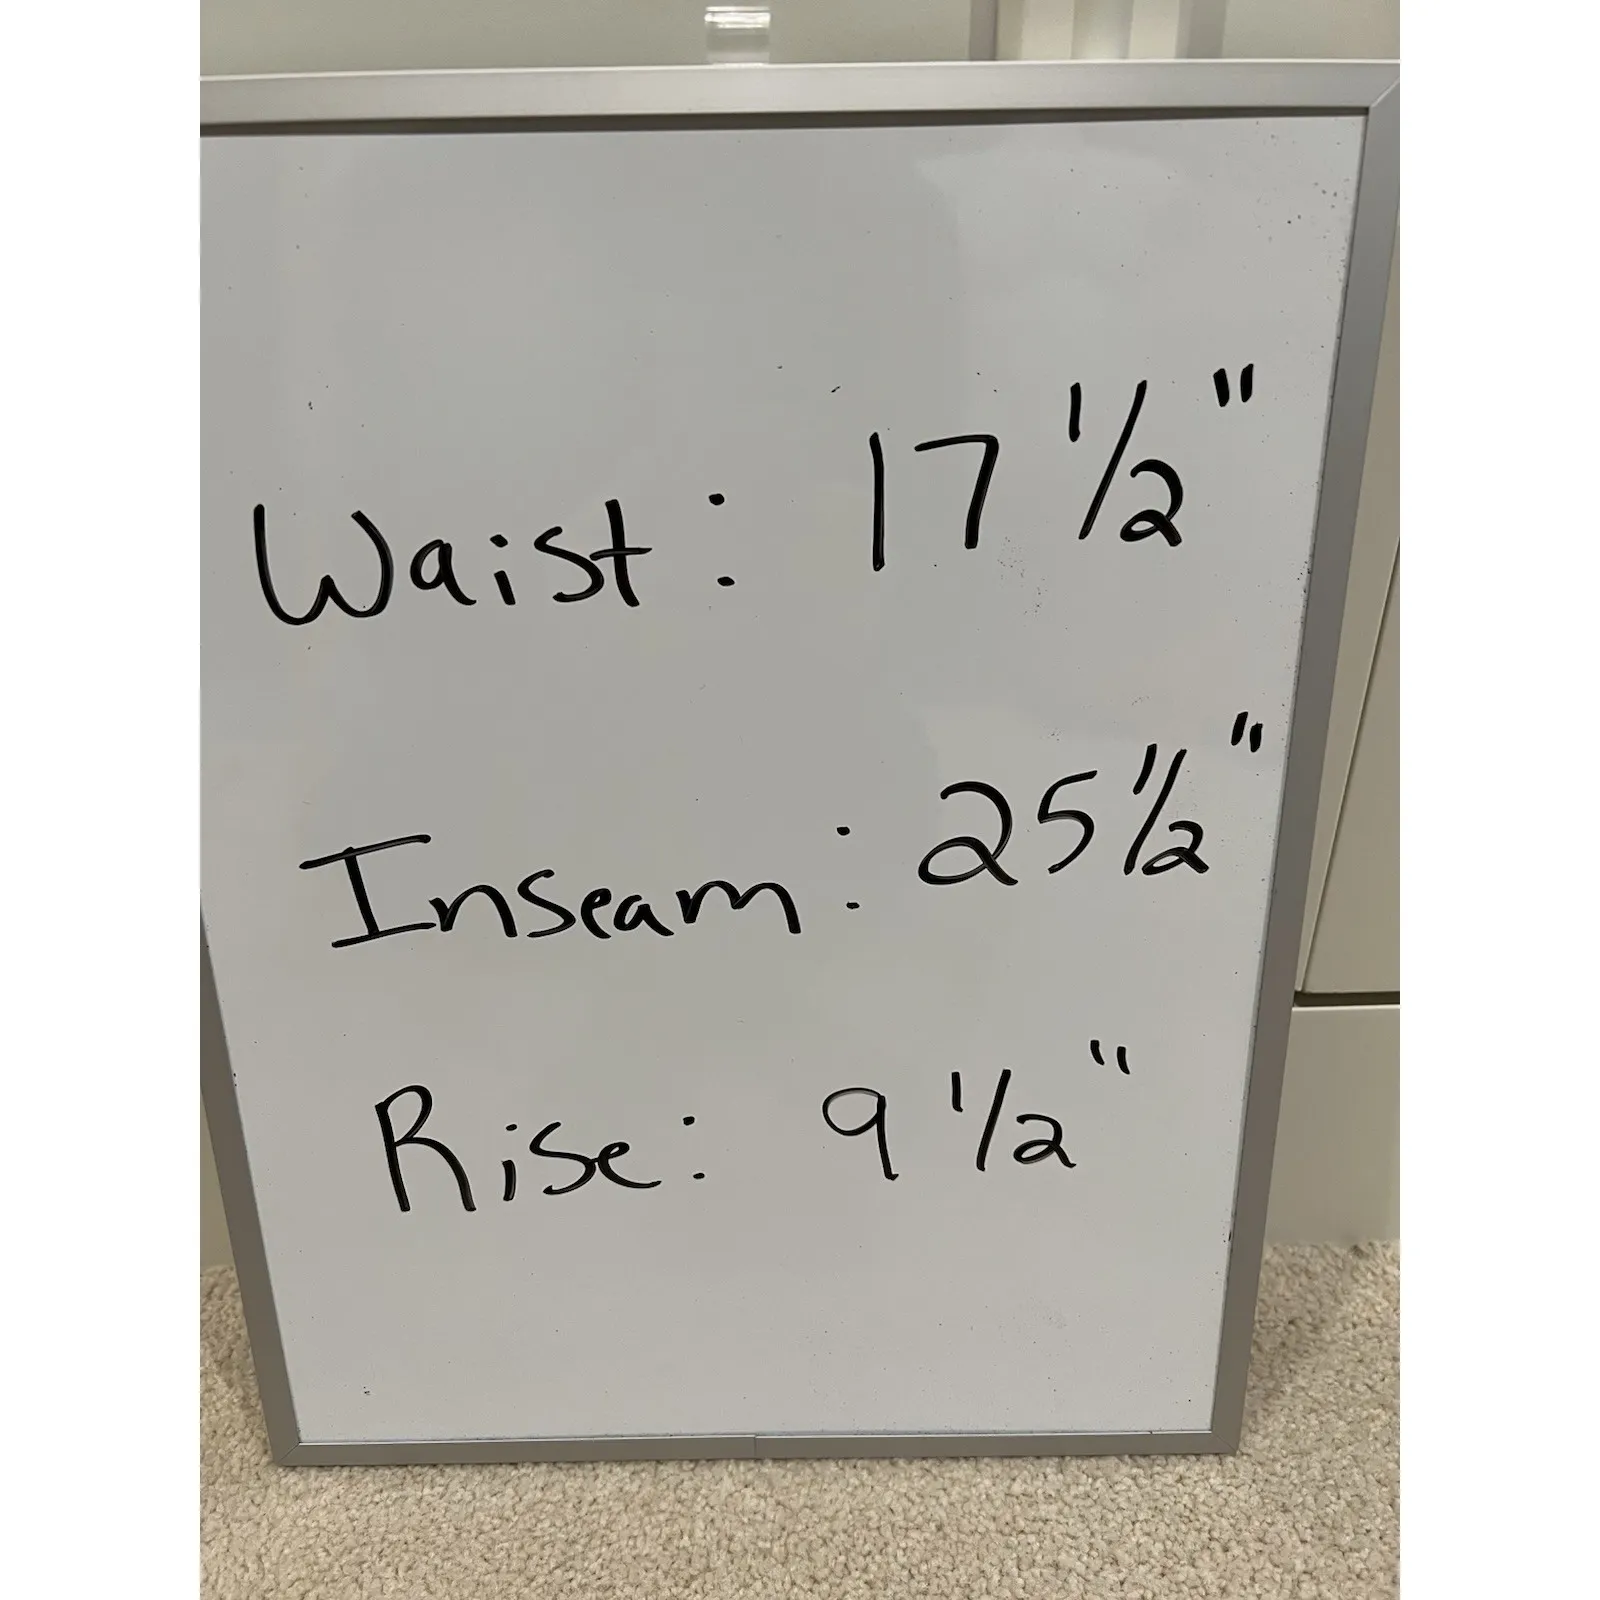 Waist: 17 1/2"
Inseam: 25 1/2"
Rise: 9 1/2"